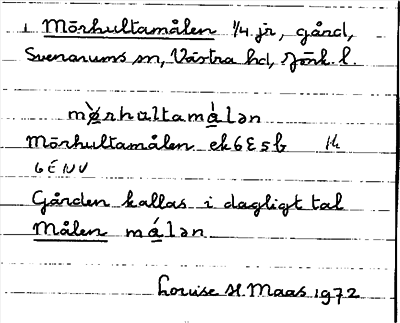 1 Mörhultamålen 1/4 jr, gård,
Svenarums sn, Västra hd, Jönk. l.
mø̀rhultamálən
Mörhultamålen ek 6E5b
6E NV
Gården kallas i dagligt tal
Målen málən
Louise H. Maas 1972